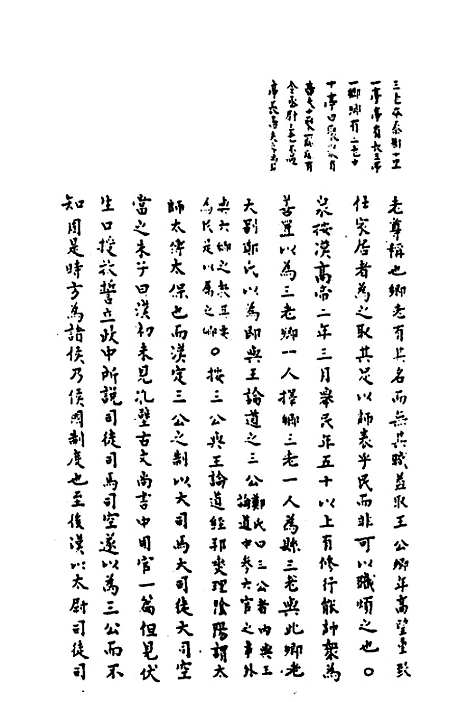 三七右秦制十里
一亭亭有長五亭
一鄉鄉有三老十
十亭曰聚聚有
令丞尉
老尊稱也鄉老有其名而無其職蓋取王公卿年高望重致
仕家居者為之取其足以師表乎民而非可以職煩之也。
泉按漢高帝二年三月舉民年五十以上有修行能帥衆為
善置以為三老鄉一人擇鄉三老一人為縣三老與此鄉老
大別鄭氏以為即與王論道之三公鄭氏曰三公者內與王
論道中參六官之事外
與六鄉之教其要
為民是以屬之鄉。按三公與王論道經邦燮理陰陽謂太
師太傅太保也而漢定三公之制以大司馬大司徒大司空
當之朱子曰漢初未見孔壁古文尚書中周官一篇但見伏
生口授牧誓立政中所說司徒司馬司空遂以為三公而不
知周是時方為諸侯乃侯國制度也至後漢以太尉司徒司